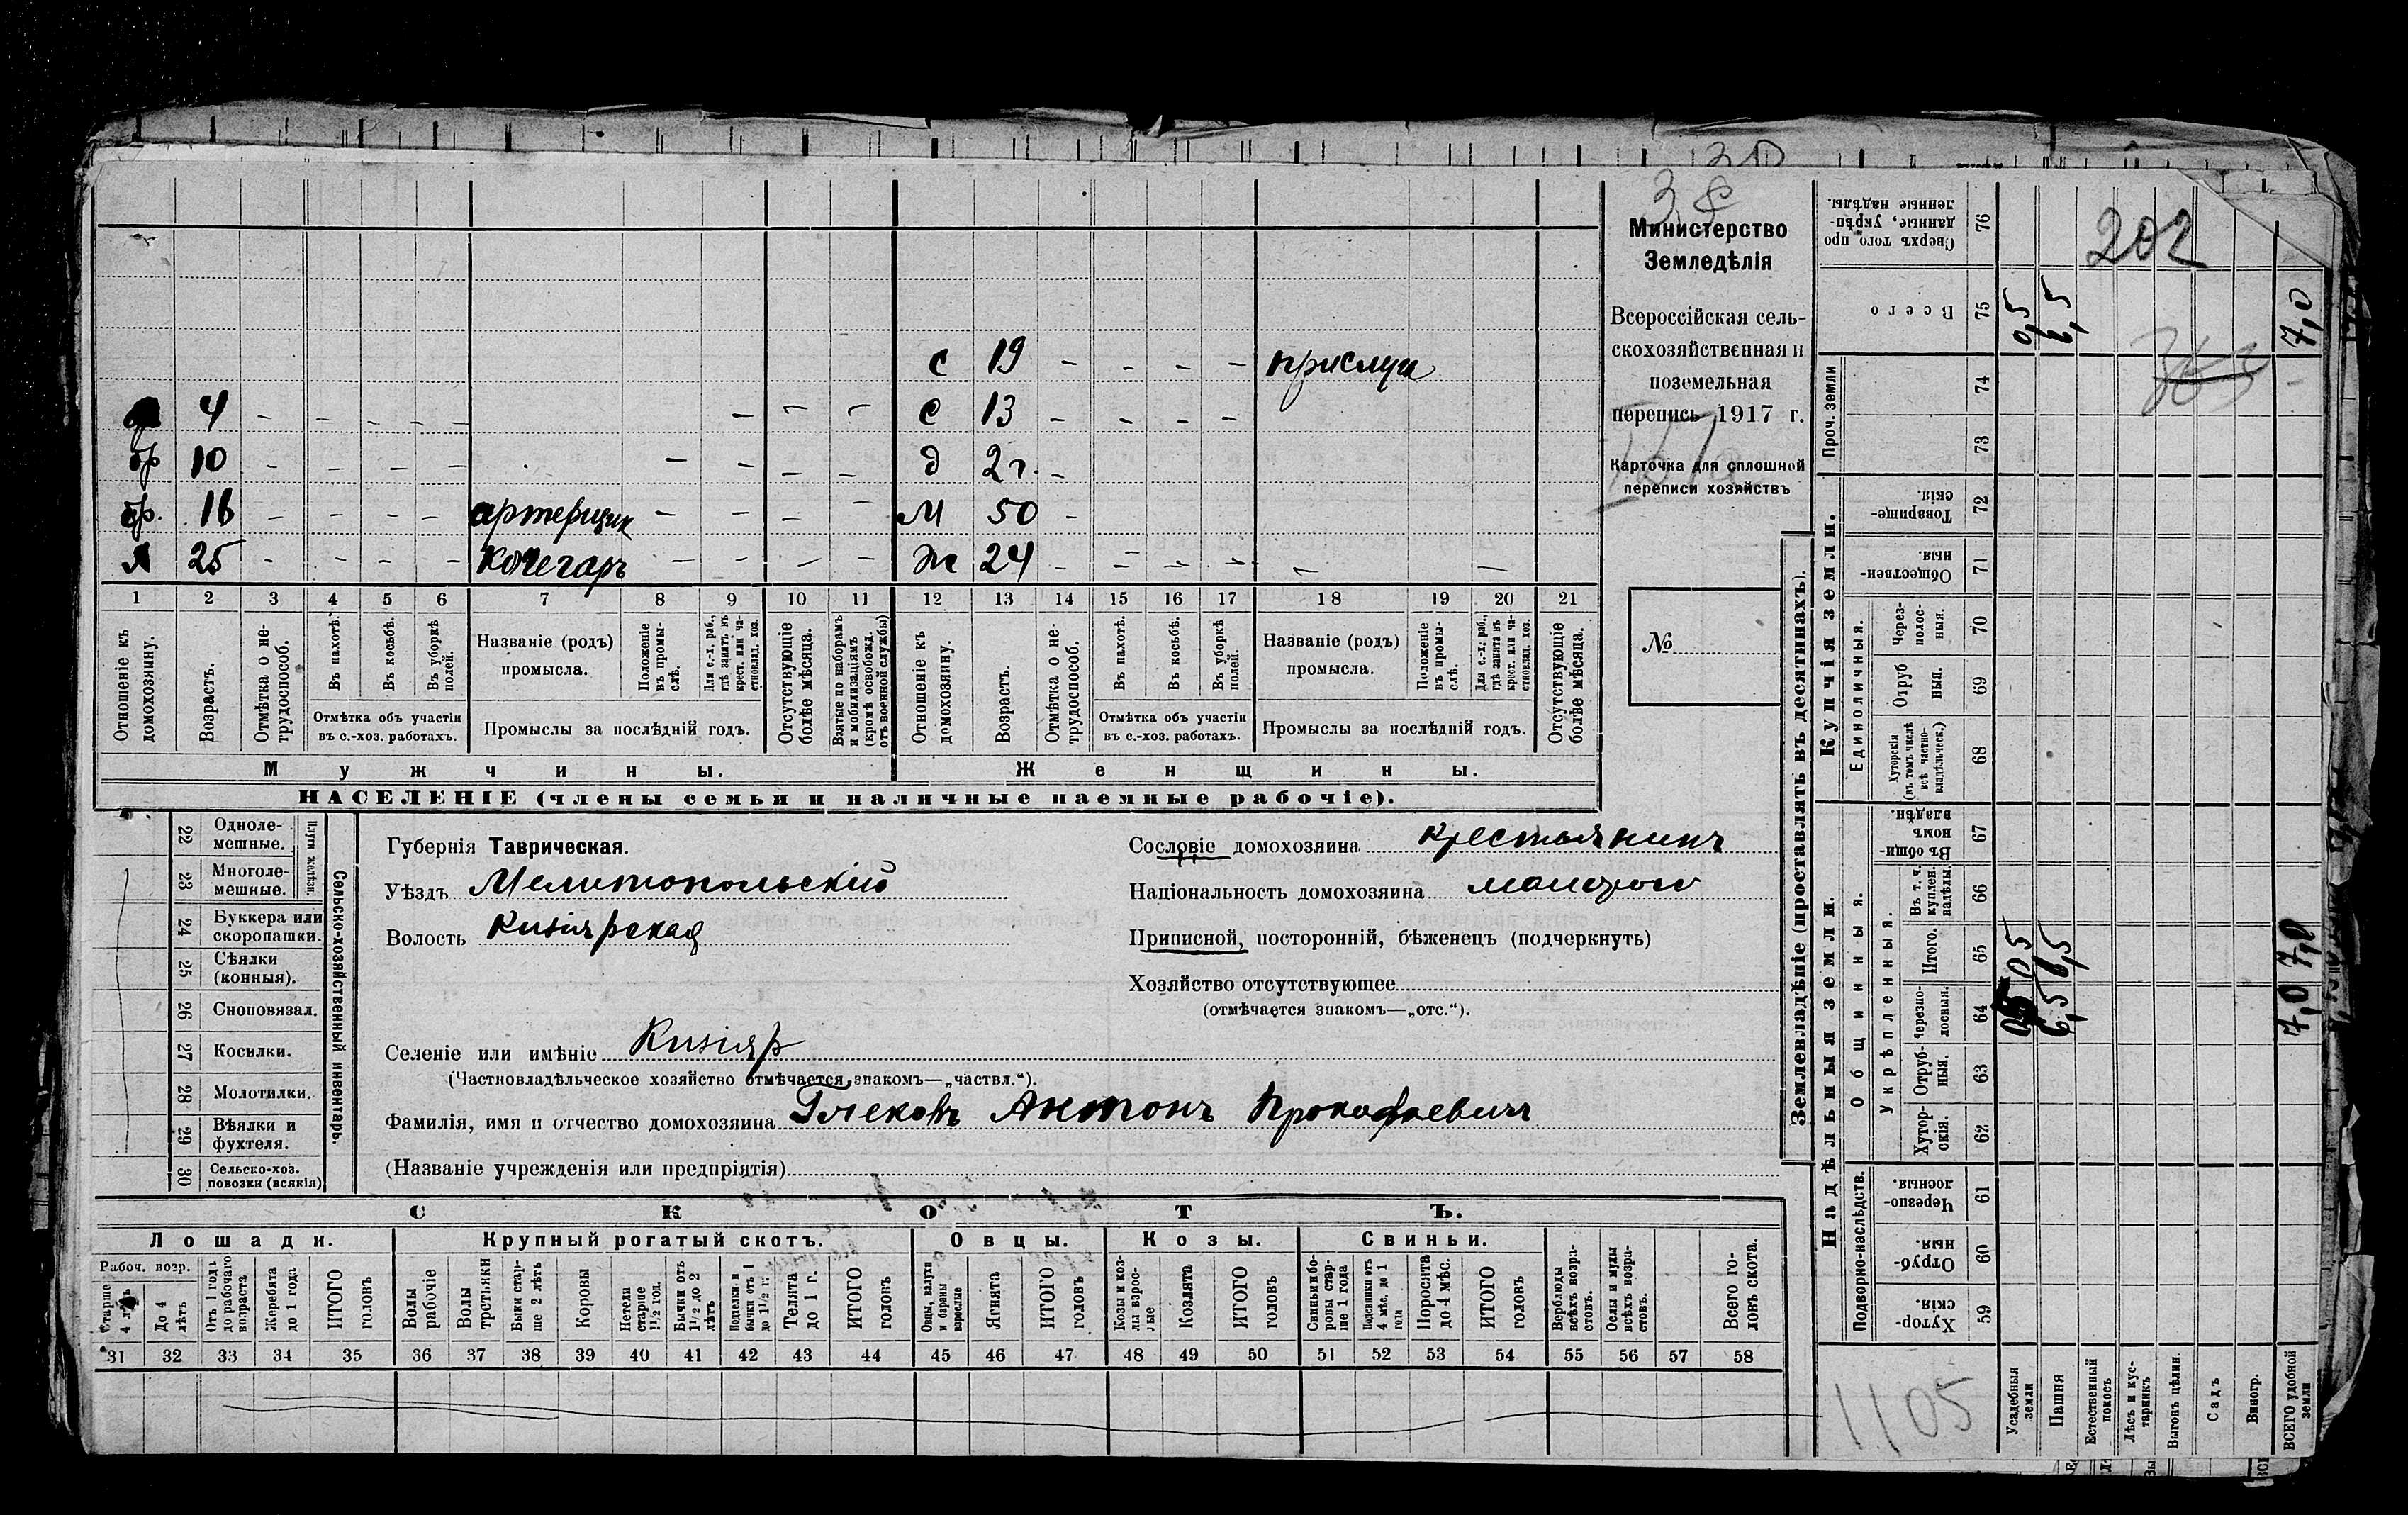 30
38
Министерство
Земледѣлія
Всероссійская сель-
скохозяйственная и
поземельная
перепись 1917 г.
Карточка для сплошной
переписи хозяйствъ
№
с 19 - - - - прислуга
4 - - - - - - - - с 13 - - - -
бр 10 - - - - - - - - - д 2 г. -
бр. 16 - - - - - - - - М 50 -
Я 25 - - - - кочегаръ - - - - Ж 24 - - - - - -
1 2 3 4 5 6 7 8 9 10 11 12 13 14 15 16 17 18 19 20 21
Отношеніе къ домохозяину.
Возрастъ.
Отмѣтка о не-трудоспособ.
Въ пахотѣ.
Въ косьбѣ.
Въ уборкѣ полей.
Отмѣтка объ участіи
въ с.-хоз. работахъ.
Названіе (родъ)
промысла.
Положеніе въ промы-слѣ.
Для с.-х. раб., гдѣ занятъ въ крест. или ча-стновлад. хоз.
Промыслы за послѣдній годъ.
Отсутствующіе болѣе мѣсяца.
Взятые по наборамъ и мобилизаціямъ (кромѣ освобожд. отъ военной службы)
Отношеніе къ домохозяину.
Возрастъ.
Отмѣтка о не-трудоспособ.
Въ пахотѣ.
Въ косьбѣ.
Въ уборкѣ полей.
Отмѣтка объ участіи
въ с.-хоз. работахъ.
Названіе (родъ)
промысла.
Положеніе въ промы-слѣ.
Для с.-х. раб., гдѣ занятъ въ крест. или ча-стновлад. хоз.
Промыслы за послѣдній годъ.
Отсутствующіе болѣе мѣсяца.
Мужчины.
Женщины.
НАСЕЛЕНІЕ (члены семьи и наличные наемные рабочіе).
22 Одноле-мешные.
23 Многоле-мешные.
Плуги желѣзн.
24 Буккера или скоропашки.
25 Сѣялки (конныя).
26 Сноповязал.
27 Косилки.
28 Молотилки.
29 Вѣялки и фухтеля.
30 Сельско-хоз. повозки (всякія)
Сельско-хозяйственный инвентарь.
Губернія Таврическая.
Уѣздъ Мелитопольскій
Волость Кизіярская
Сословіе домохозяина крестьянинъ
Національность домохозяина малорос
Приписной, посторонній, бѣженецъ (подчеркнуть)
Хозяйство отсутствующее
(отмѣчается знакомъ—„отс.“).
Селеніе или имѣніе Кизіяр
(Частновладѣльческое хозяйство отмѣчается знакомъ—„частвл.“).
Фамилія, имя и отчество домохозяина Глековъ Антонъ Прокофьевичъ
(Названіе учрежденія или предпріятія)
СКОТЪ.
Лошади.
Крупный рогатый скотъ.
Овцы.
Козы.
Свиньи.
Рабоч. возр.
Старше 4 лѣтъ
До 4 лѣтъ
Отъ 1 года до рабочаго возраста
Жеребята до 1 года
ИТОГО головъ
Волы рабочіе
Волы третьяки
Быки стар-ше 2 лѣтъ
Коровы
Нетели старше 1½ год.
Бычки отъ 1½ до 2 лѣтъ
Подтелки и бычки отъ 1 до 1½ г.
Телята до 1 г.
ИТОГО головъ
Овцы, валухи и бараны взрослые
Ягнята
ИТОГО головъ
Козы и коз-лы взрос-лые
Козлята
ИТОГО головъ
Свиньи и бо-ровы стар-ше 1 года
Подсвинки отъ 4 мѣс. до 1 года
Поросята до 4 мѣс.
ИТОГО головъ
Верблюды всѣхъ возра-стовъ.
Ослы и мулы всѣхъ возра-стовъ.
Всего го-ловъ скота.
31 32 33 34 35 36 37 38 39 40 41 42 43 44 45 46 47 48 49 50 51 52 53 54 55 56 57 58
Землевладѣніе (проставлять въ десятинахъ).
Купчія земли.
Надѣльныя земли.
Сверхъ того про-данные, укрѣп-ленные надѣлы. 76
202
Всего 75 0,5 6,5 7,0
Проч. земли 74
73
Товарище-скія. 72
Обществен-ныя. 71
Единоличныя.
Через-полос-ныя. 70
Отруб-ныя. 69
Хуторскія (въ томъ числѣ всѣ частно-владѣльческ.) 68
Общинныя.
Въ общин-номъ владѣн. 67
Укрѣпленныя.
Въ т. ч. куплен. надѣлы. 66
Итого. 65 05 6,5 7,0
Черезпо-лосныя. 64 05 6,5 7,0
Отруб-ныя. 63
Хутор-скія. 62
Подворно-наслѣдств.
Черезпо-лосныя. 61
Отруб-ныя 60
Хутор-скія. 59
1105
Усадебныя земли
Пашня
Естественный покосъ
Лѣсъ и кус-тарникъ
Выгонъ цѣлин.
Садъ
Виногр.
ВСЕГО удобной земли